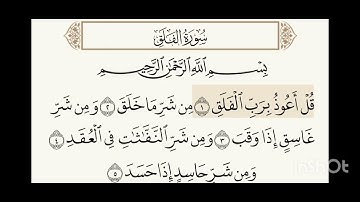 سُورَةُ الفَلَقِ
بِسْمِ اللَّهِ الرَّحْمَٰنِ الرَّحِيمِ
قُلْ أَعُوذُ بِرَبِّ الْفَلَقِ ١ مِن شَرِّ مَا خَلَقَ ٢ وَمِن شَرِّ
غَاسِقٍ إِذَا وَقَبَ ٣ وَمِن شَرِّ النَّفَّاثَاتِ فِي الْعُقَدِ ٤
وَمِن شَرِّ حَاسِدٍ إِذَا حَسَدَ ٥
InShOt